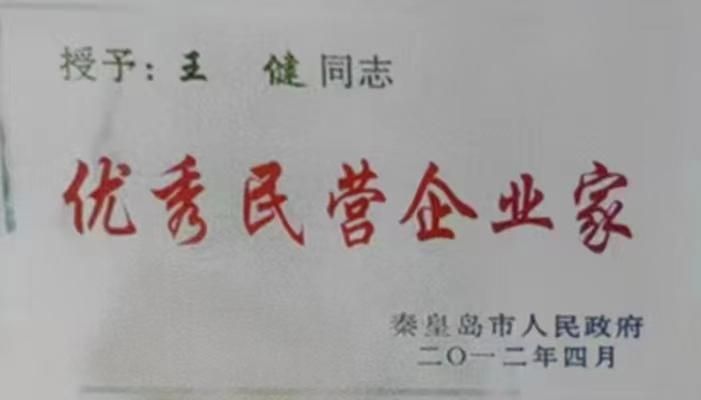 授予：王 健同志
优秀民营企业家
秦皇岛市人民政府
二〇一二年四月